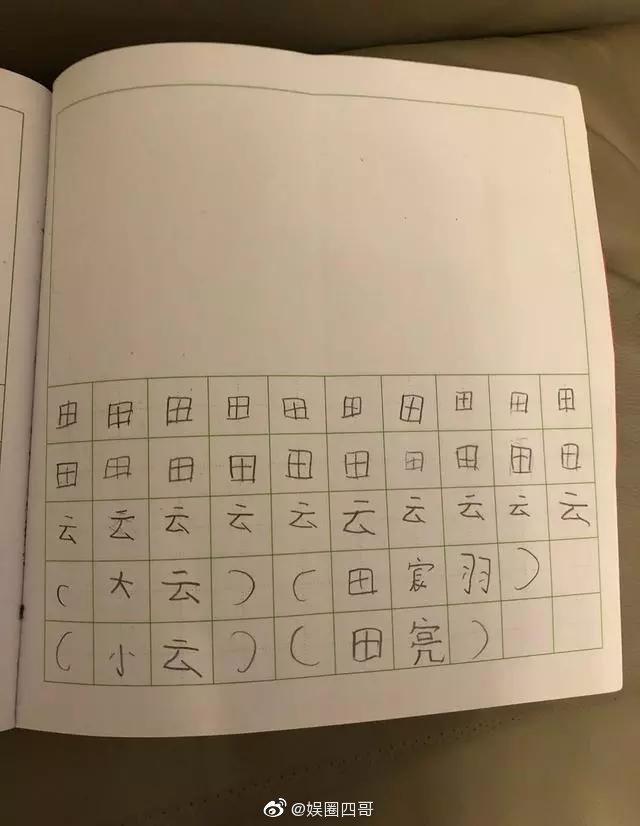 田田田田田田田田田田
田田田田田田田田田田
云云云云云云云云云云
（大云）（田宸羽）
（小云）（田亮）
@娱圈四哥